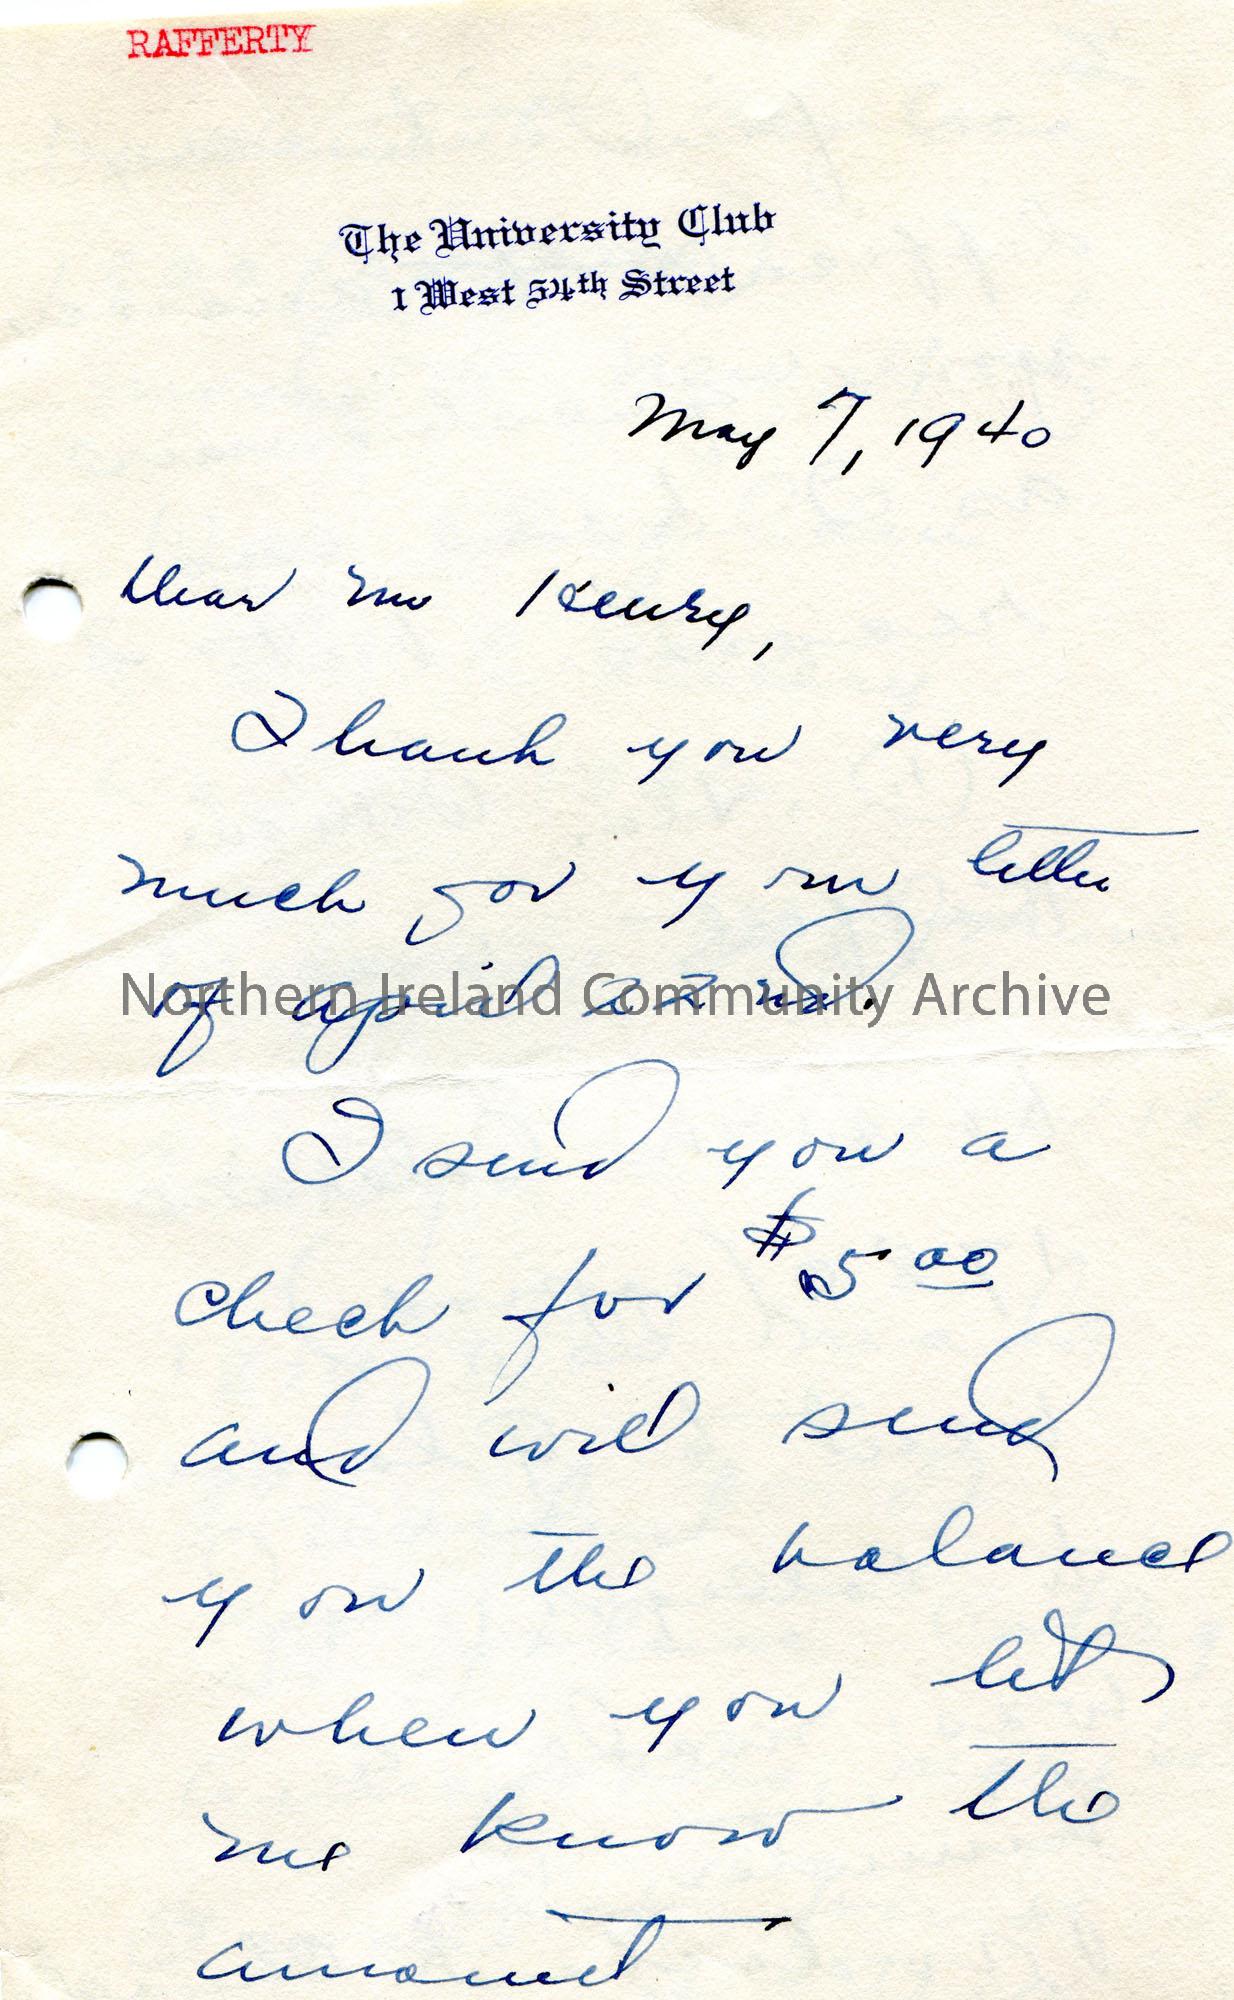 RAFFERTY
The University Club
1 West 54th Street
May 7, 1940
Dear Mr Henry,
Thank you very
much for your letter
of April 22nd.
Northern Ireland Community Archive
I send you a
check for $5.00
and will send
you the balance
when you let
me know the
amount